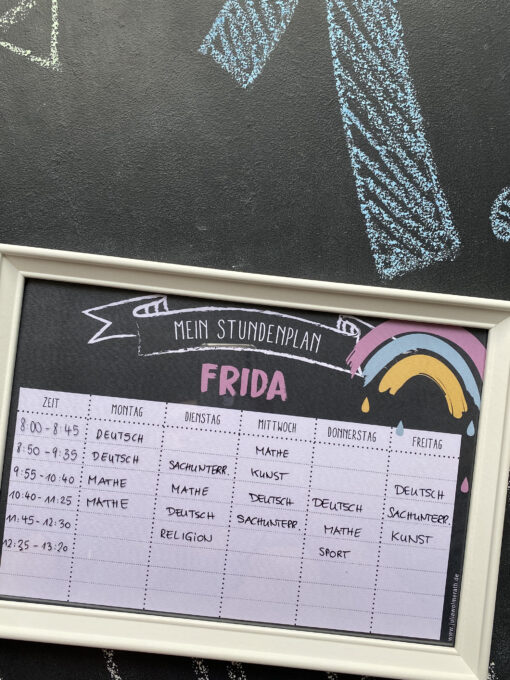 MEIN STUNDENPLAN
FRIDA
ZEIT MONTAG DIENSTAG MITTWOCH DONNERSTAG FREITAG
8:00 - 8:45 DEUTSCH MATHE
8:50 - 9:35 DEUTSCH SACHUNTERR. KUNST DEUTSCH
9:55 - 10:40 MATHE MATHE DEUTSCH DEUTSCH SACHUNTERR.
10:40 - 11:25 MATHE DEUTSCH SACHUNTERR. MATHE KUNST
11:45 - 12:30 RELIGION SPORT
12:35 - 13:20
www.juliawolmerath.de